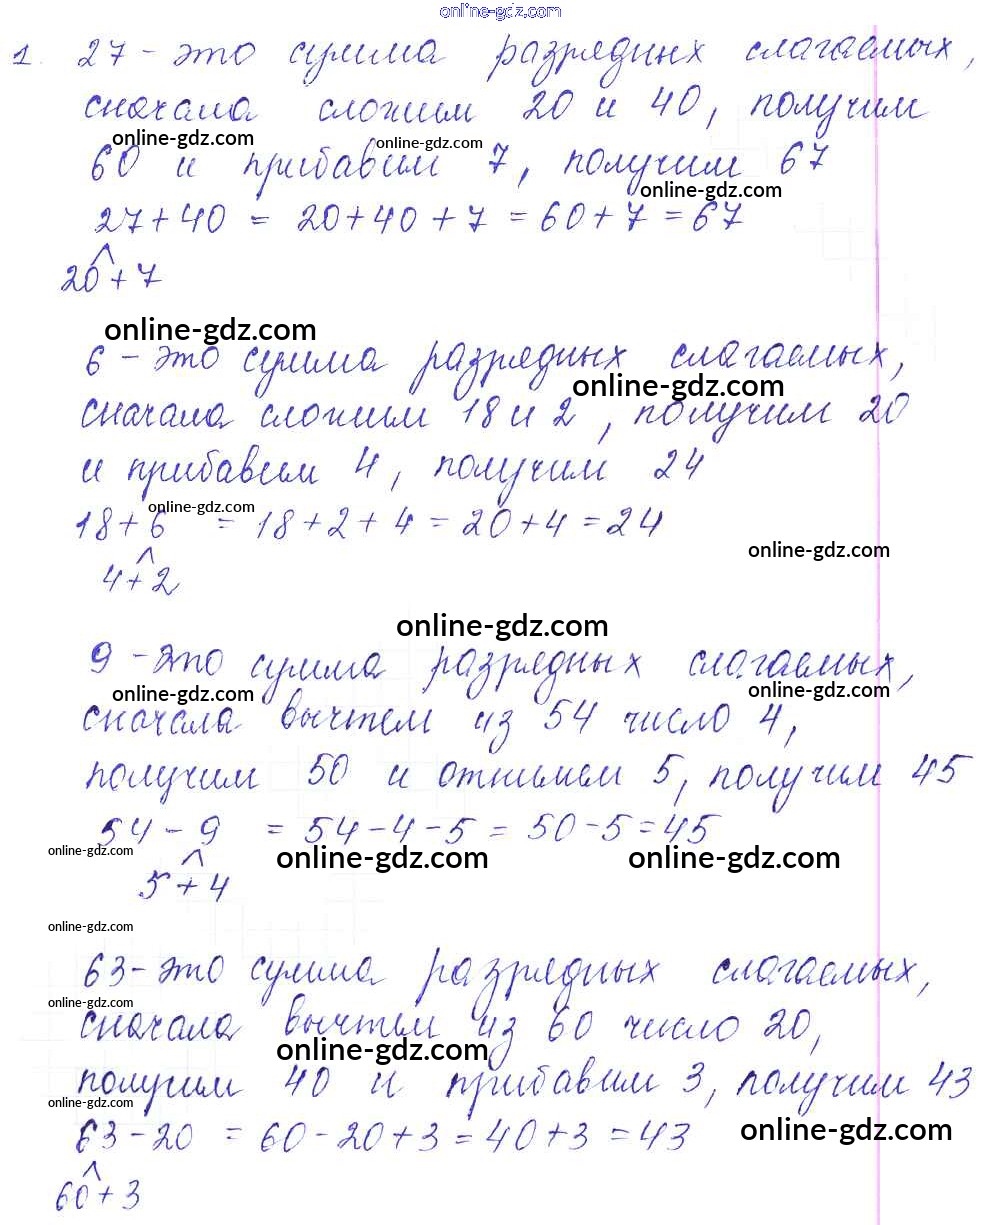 online-gdz.com
1. 27 - это сумма разрядных слагаемых,
сначала сложим 20 и 40, получим
online-gdz.com online-gdz.com
60 и прибавим 7, получим 67
online-gdz.com
27+40 = 20+40+7 = 60+7 = 67
20+7
online-gdz.com
6 - это сумма разрядных слагаемых,
online-gdz.com
сначала сложим 18 и 2, получим 20
и прибавим 4, получим 24
online-gdz.com
18+6 = 18+2+4 = 20+4 = 24
online-gdz.com
4+2
online-gdz.com
9 - это сумма разрядных слагаемых,
online-gdz.com online-gdz.com
сначала вычтем из 54 число 4,
получим 50 и отнимем 5, получим 45
54-9 = 54-4-5 = 50-5=45
online-gdz.com online-gdz.com online-gdz.com
5+4
online-gdz.com
63 - это сумма разрядных слагаемых,
online-gdz.com
сначала вычтем из 60 число 20,
online-gdz.com
получим 40 и прибавим 3, получим 43
online-gdz.com
63-20 = 60-20+3 = 40+3 = 43
online-gdz.com
60+3